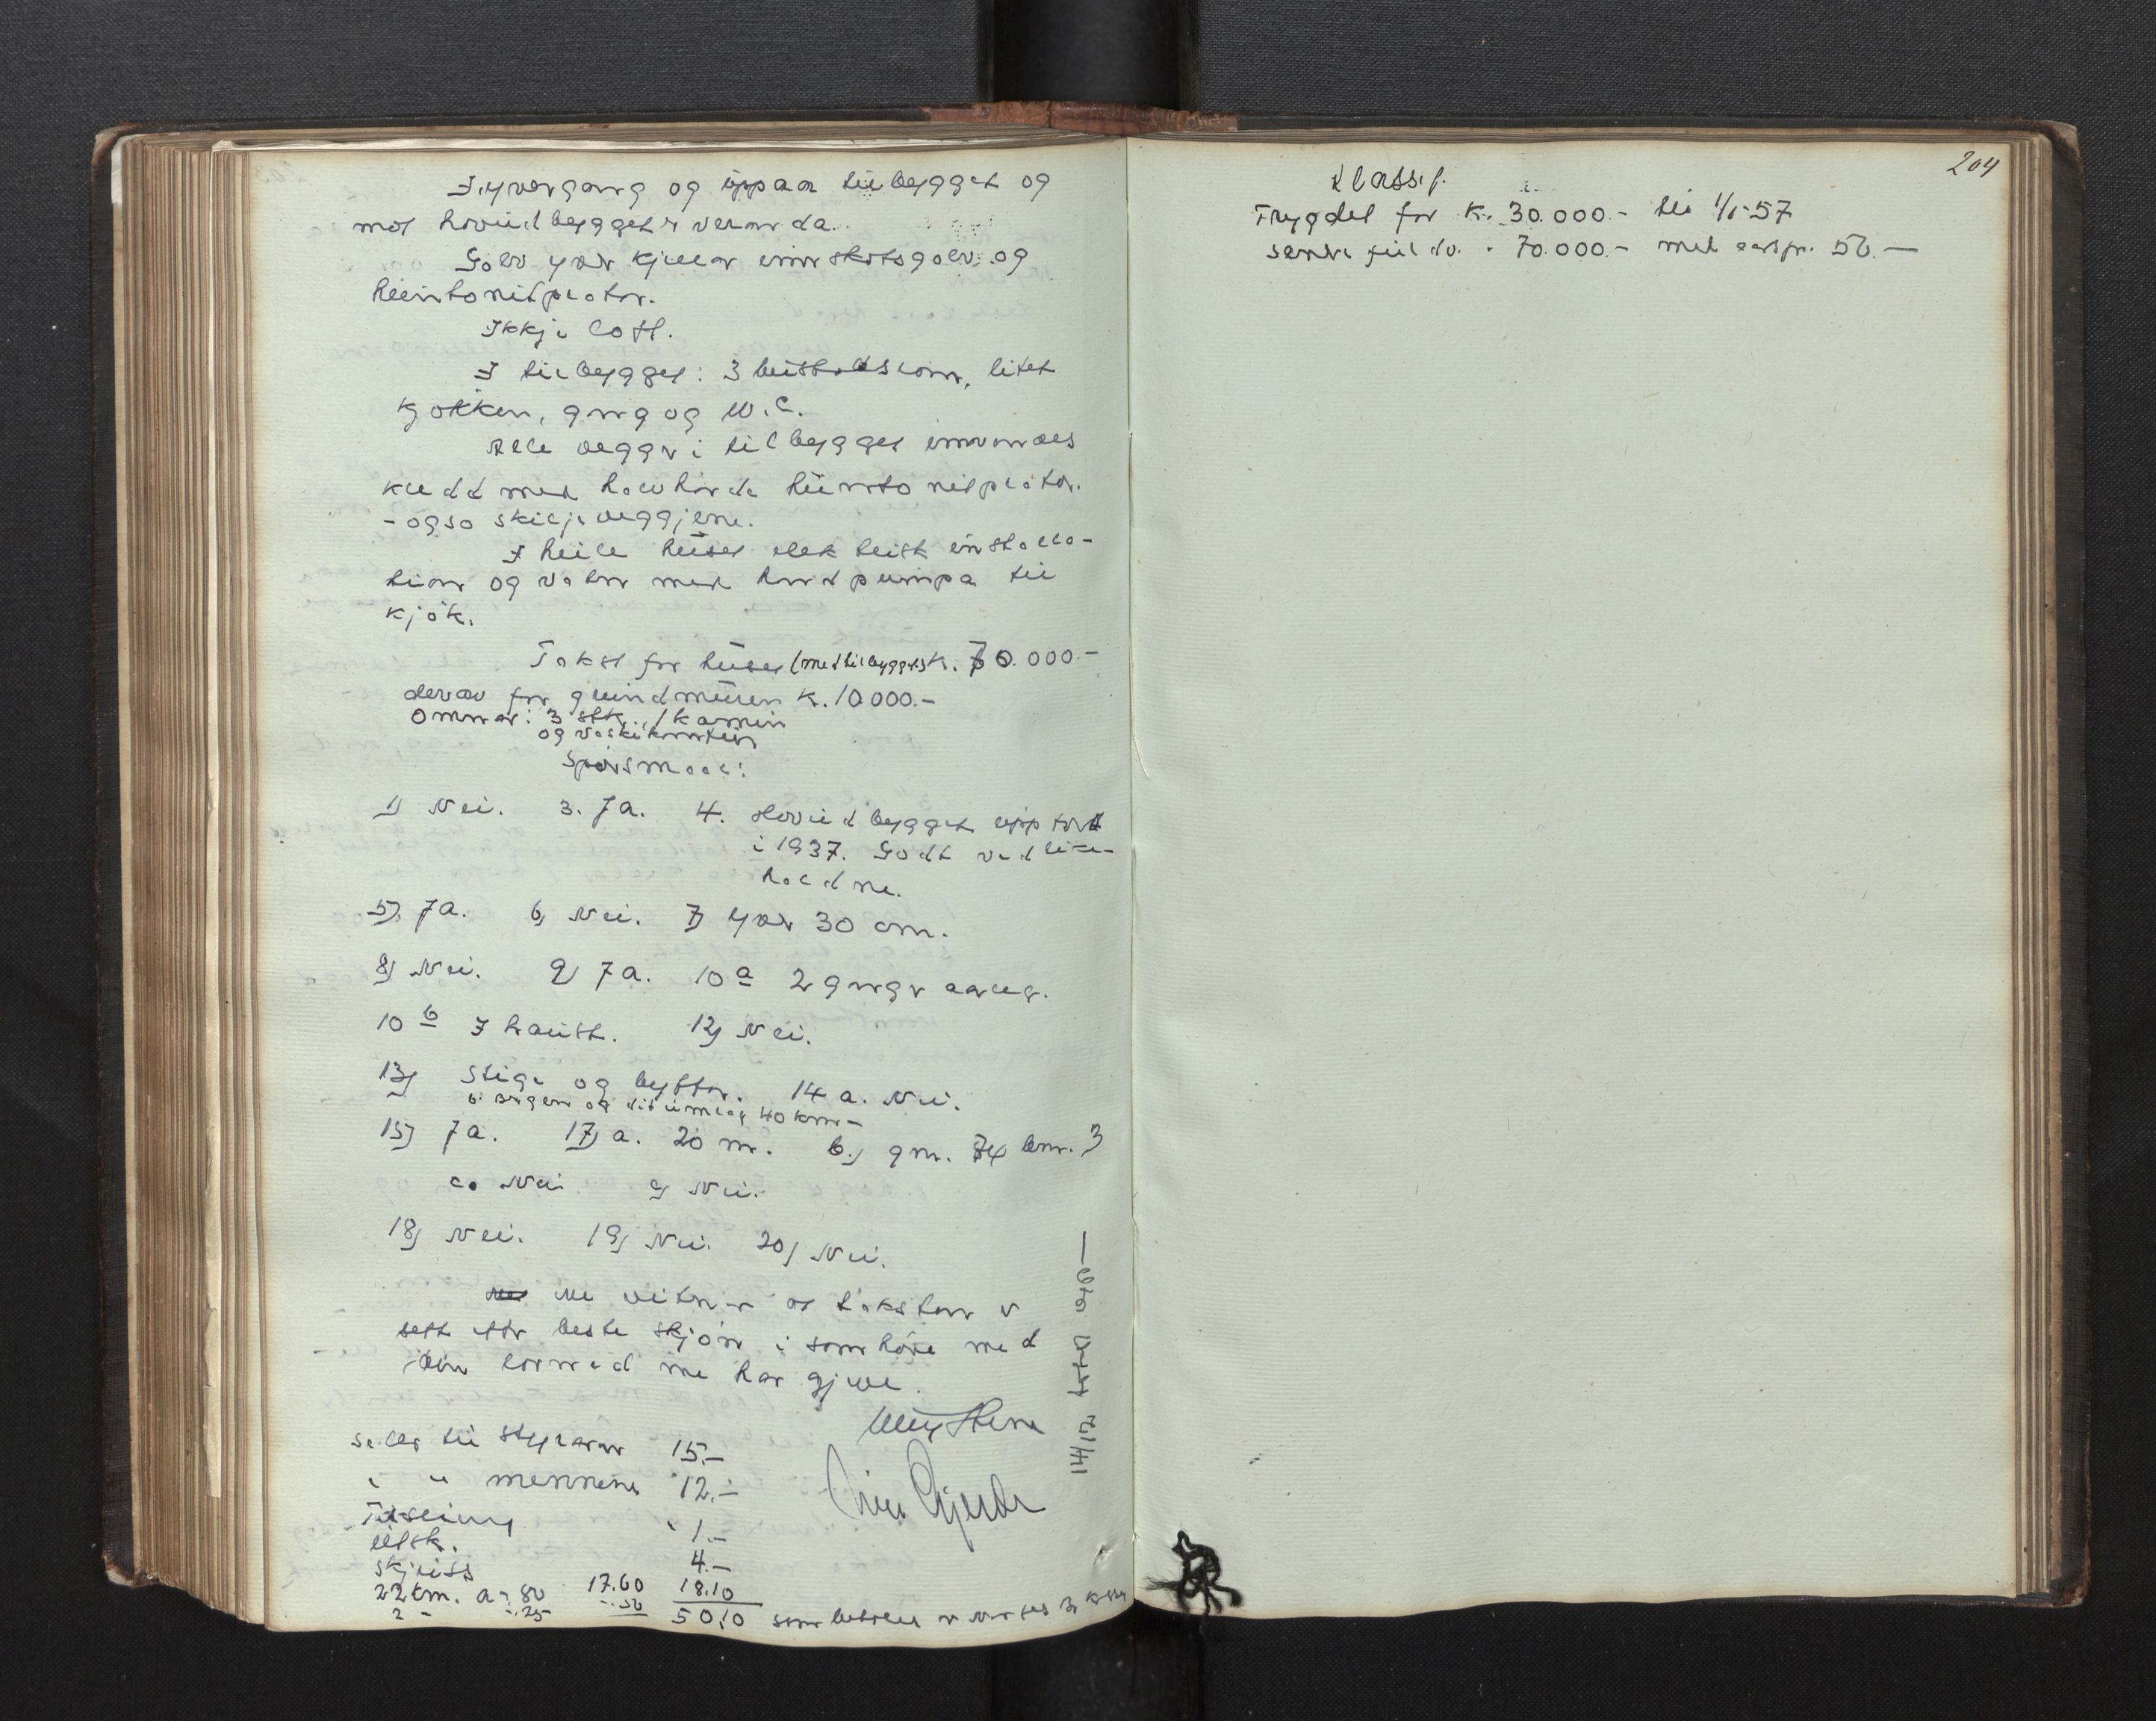 Iyvergang og uppaa tilbygget og
mot hovudbygget er veranda.
Golv yver kjellar innskotsgolv og
huntonitplator.
Ikkje loft.
I tilbygget: 3 bustadsrom, litet
kjøkken, gang og W.C.
Alle vegger i tilbygget innvendes
kledd med halvharde huntonitplator.
- ogso skiljeveggjene.
I heile huset elektrisk installa-
tion og vatn med handpumpa til
kjøk.
Takst for huset (med tilbygget) kr. 70.000.-
derav for grundmuren kr. 10000.-
Omnar: 3 stk., 1 kamin
og vaskekum
Spørsmaal:
1) Nei. 3. Ja. 4. Hovudbygget uppført
i 1937. Godt vedlike-
haldne.
5) Ja. 6) Nei. 7) Yver 30 cm.
8) Nei. 9) Ja. 10 a 2 gangr aarleg.
10 b I haust. 12) Nei.
13) Stige og byttor. 14 a. Nei.
b. Bergen og dit umlag 40 km-
15) Ja. 17) a. 20 m. b.) 9 m.
c. Nei Nei.
18) Nei. 19) Nei. 20) Nei.
Me vitnar at taksten er
sett etter beste skjøn i samhøve med
den lovnad me har gjeve.
Sedlar til styraren 15.-
" " mennene 12.-
1.-
utsk. 4.-
Skjuss
22 km. a -.80 17.60 18.10
2 - -.25 -.50 50.10 som betales
1417
204
Klassif.
Trygdet for kr. 30.000.- til 1/1-57
senere full do. " 70.000.- med aarspr. 56.-